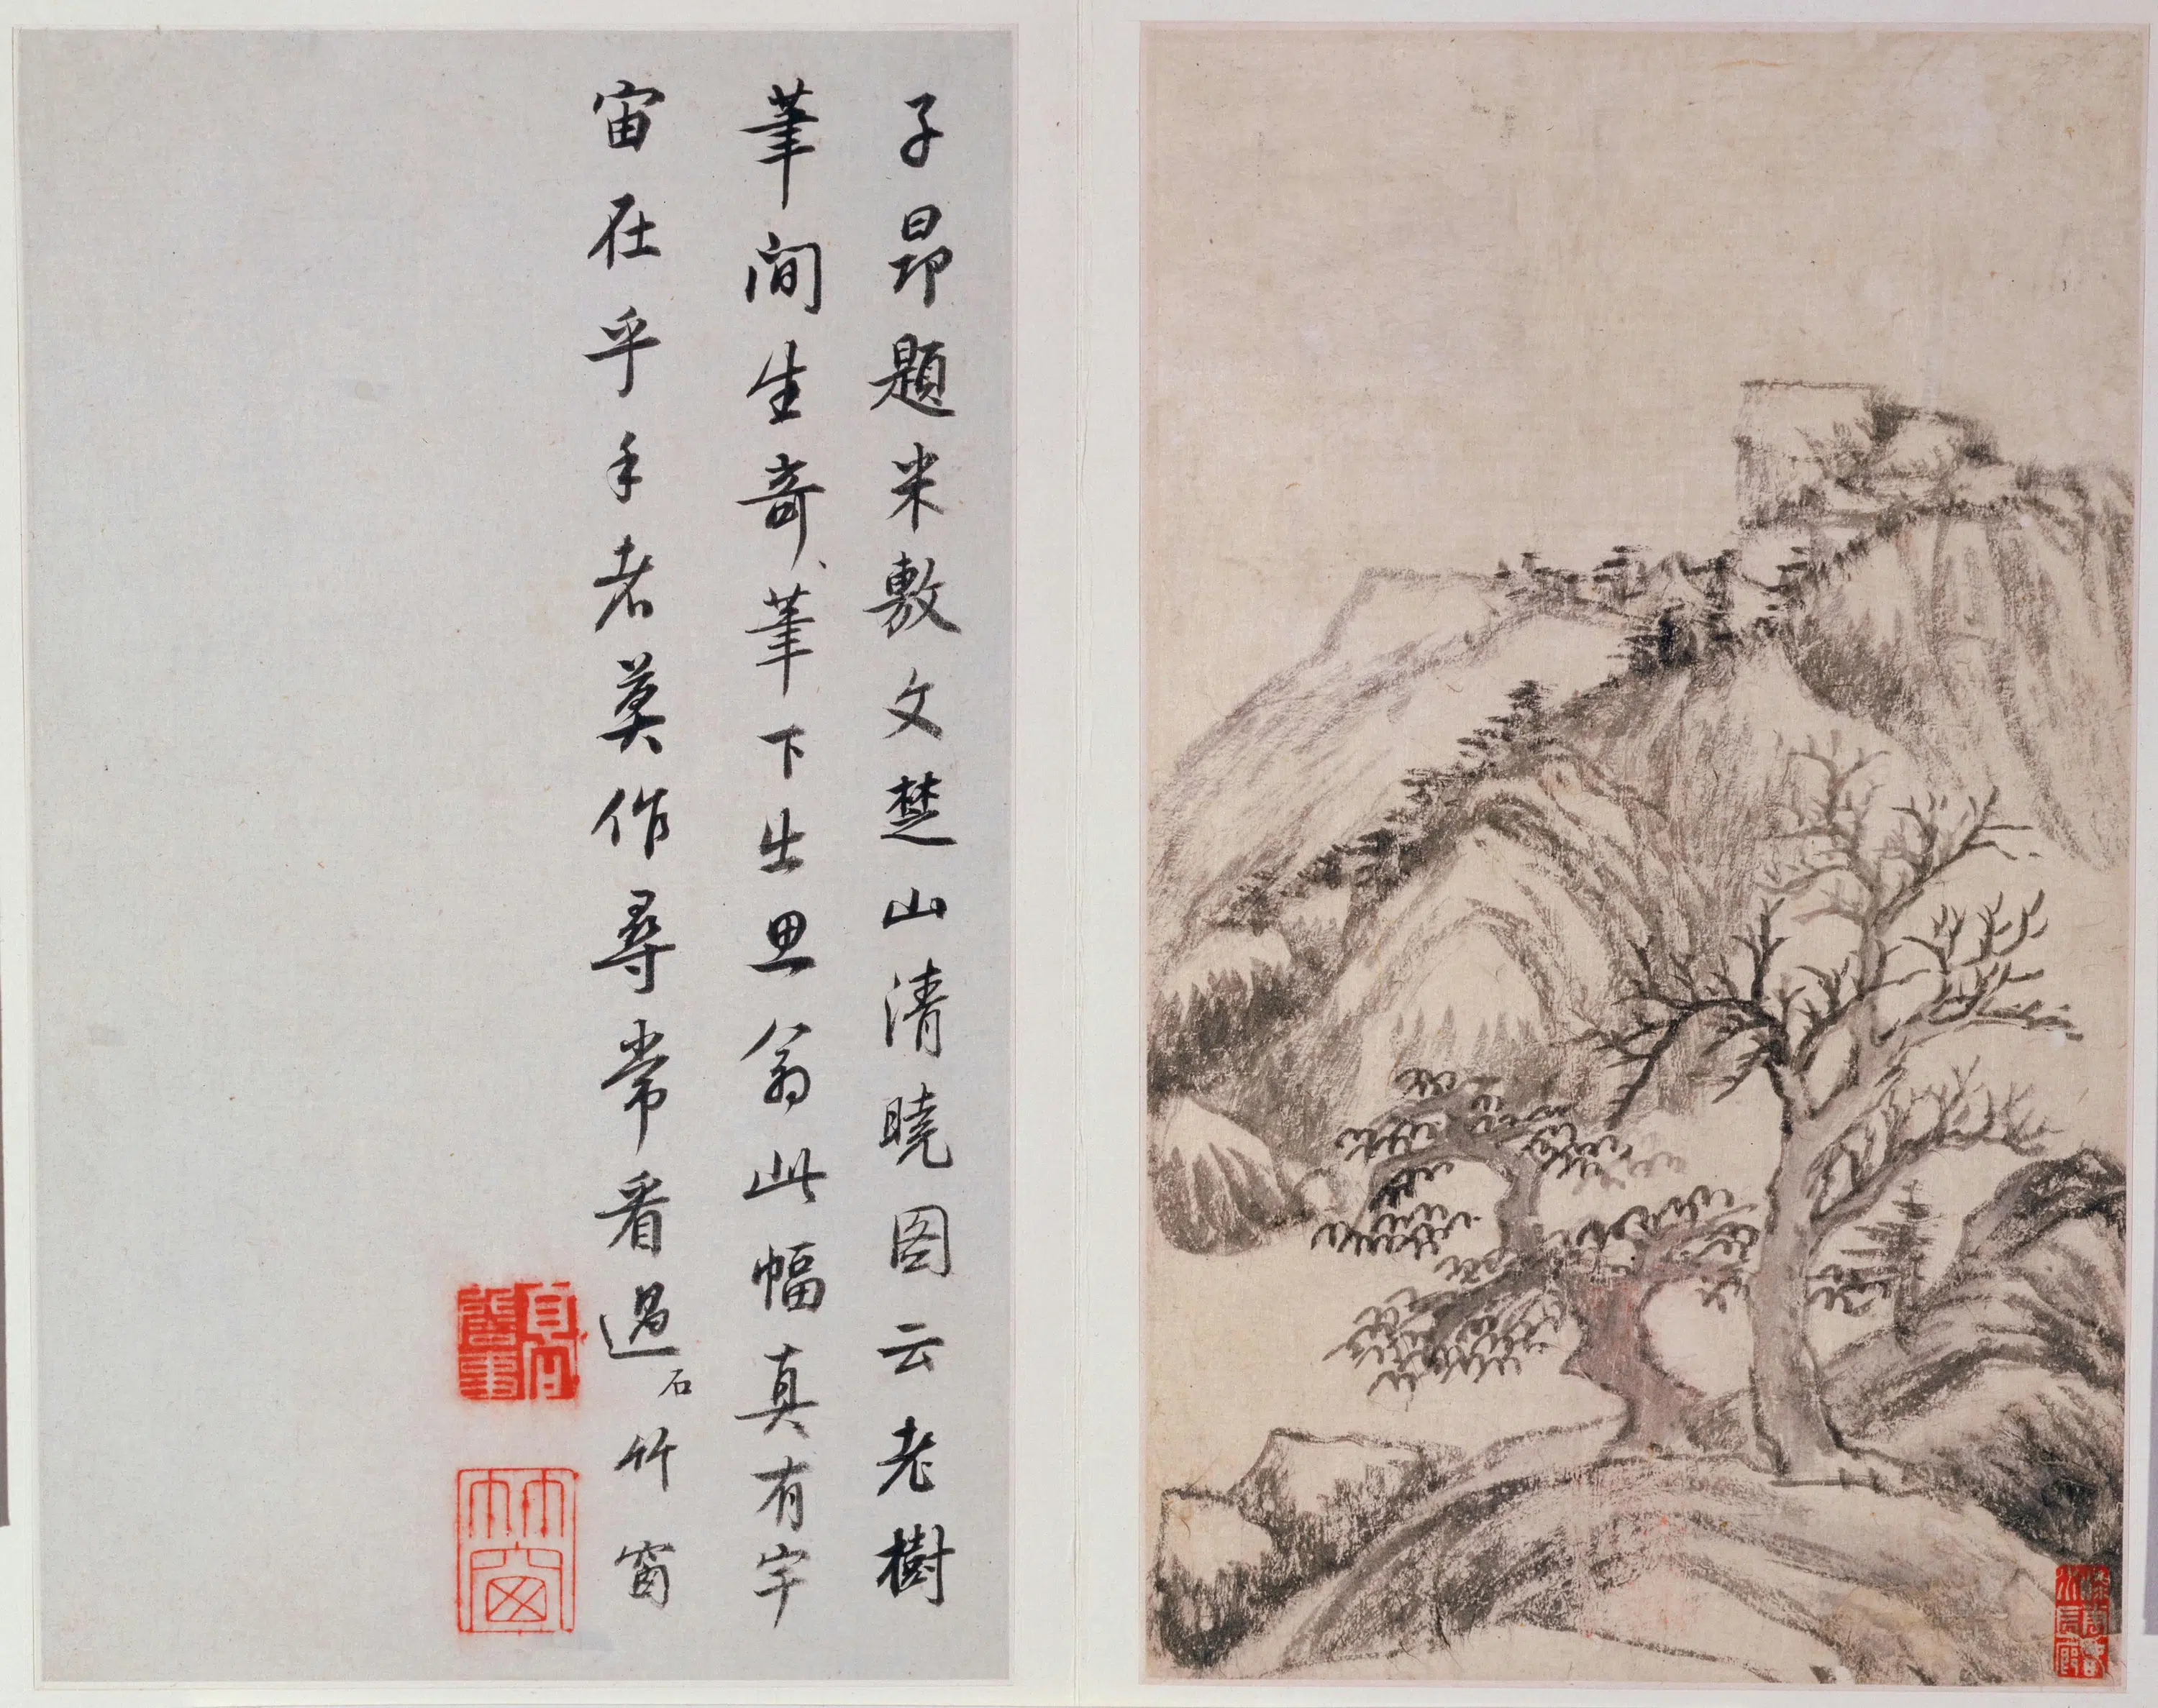 子昂題米敷文楚山清曉图云老樹
筆间生奇、筆下出思翁此幅真有宇
宙在乎手者莫作尋常看過 石
竹窗
竹窗